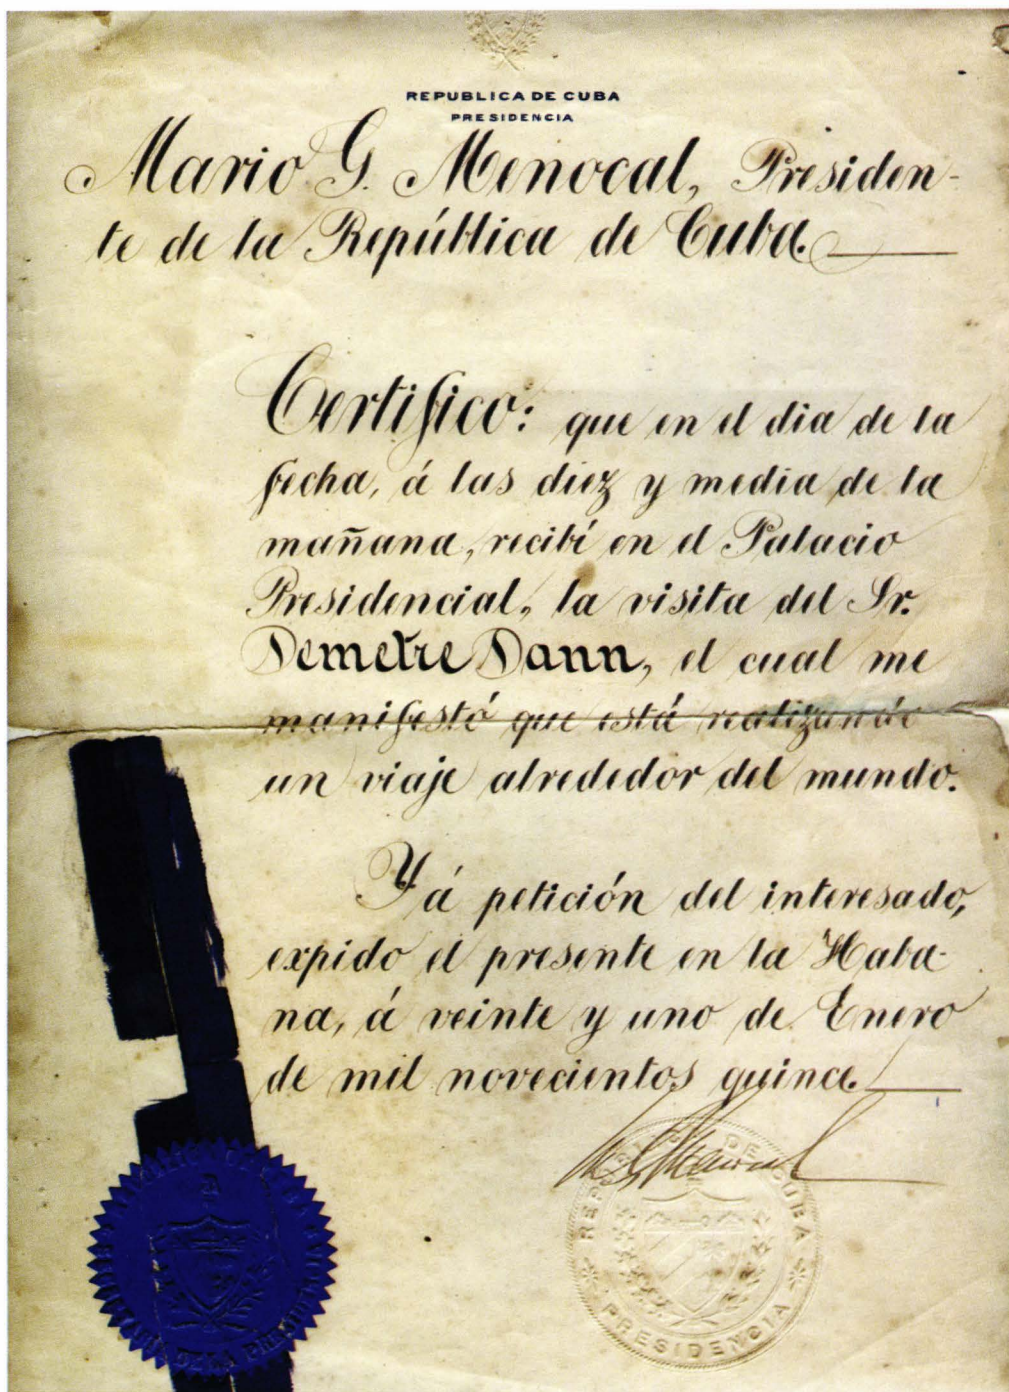 REPUBLICA DE CUBA
PRESIDENCIA
Mario G. Menocal, Presiden-
te de la República de Cuba.
Certifico: que en el dia de la
fecha, á las diez y media de la
mañana, recibí en el Palacio
Presidencial, la visita del Sr.
Demetre Dann, el cual me
manifestó que está realizando
un viaje alrededor del mundo.
Y á petición del interesado,
expido el presente en la Haba-
na, á veinte y uno de Enero
de mil novecientos quince.
M G Menocal
REPUBLICA DE CUBA
PRESIDENCIA
REPUBLICA DE CUBA
SECRETARIA DE LA PRESIDENCIA